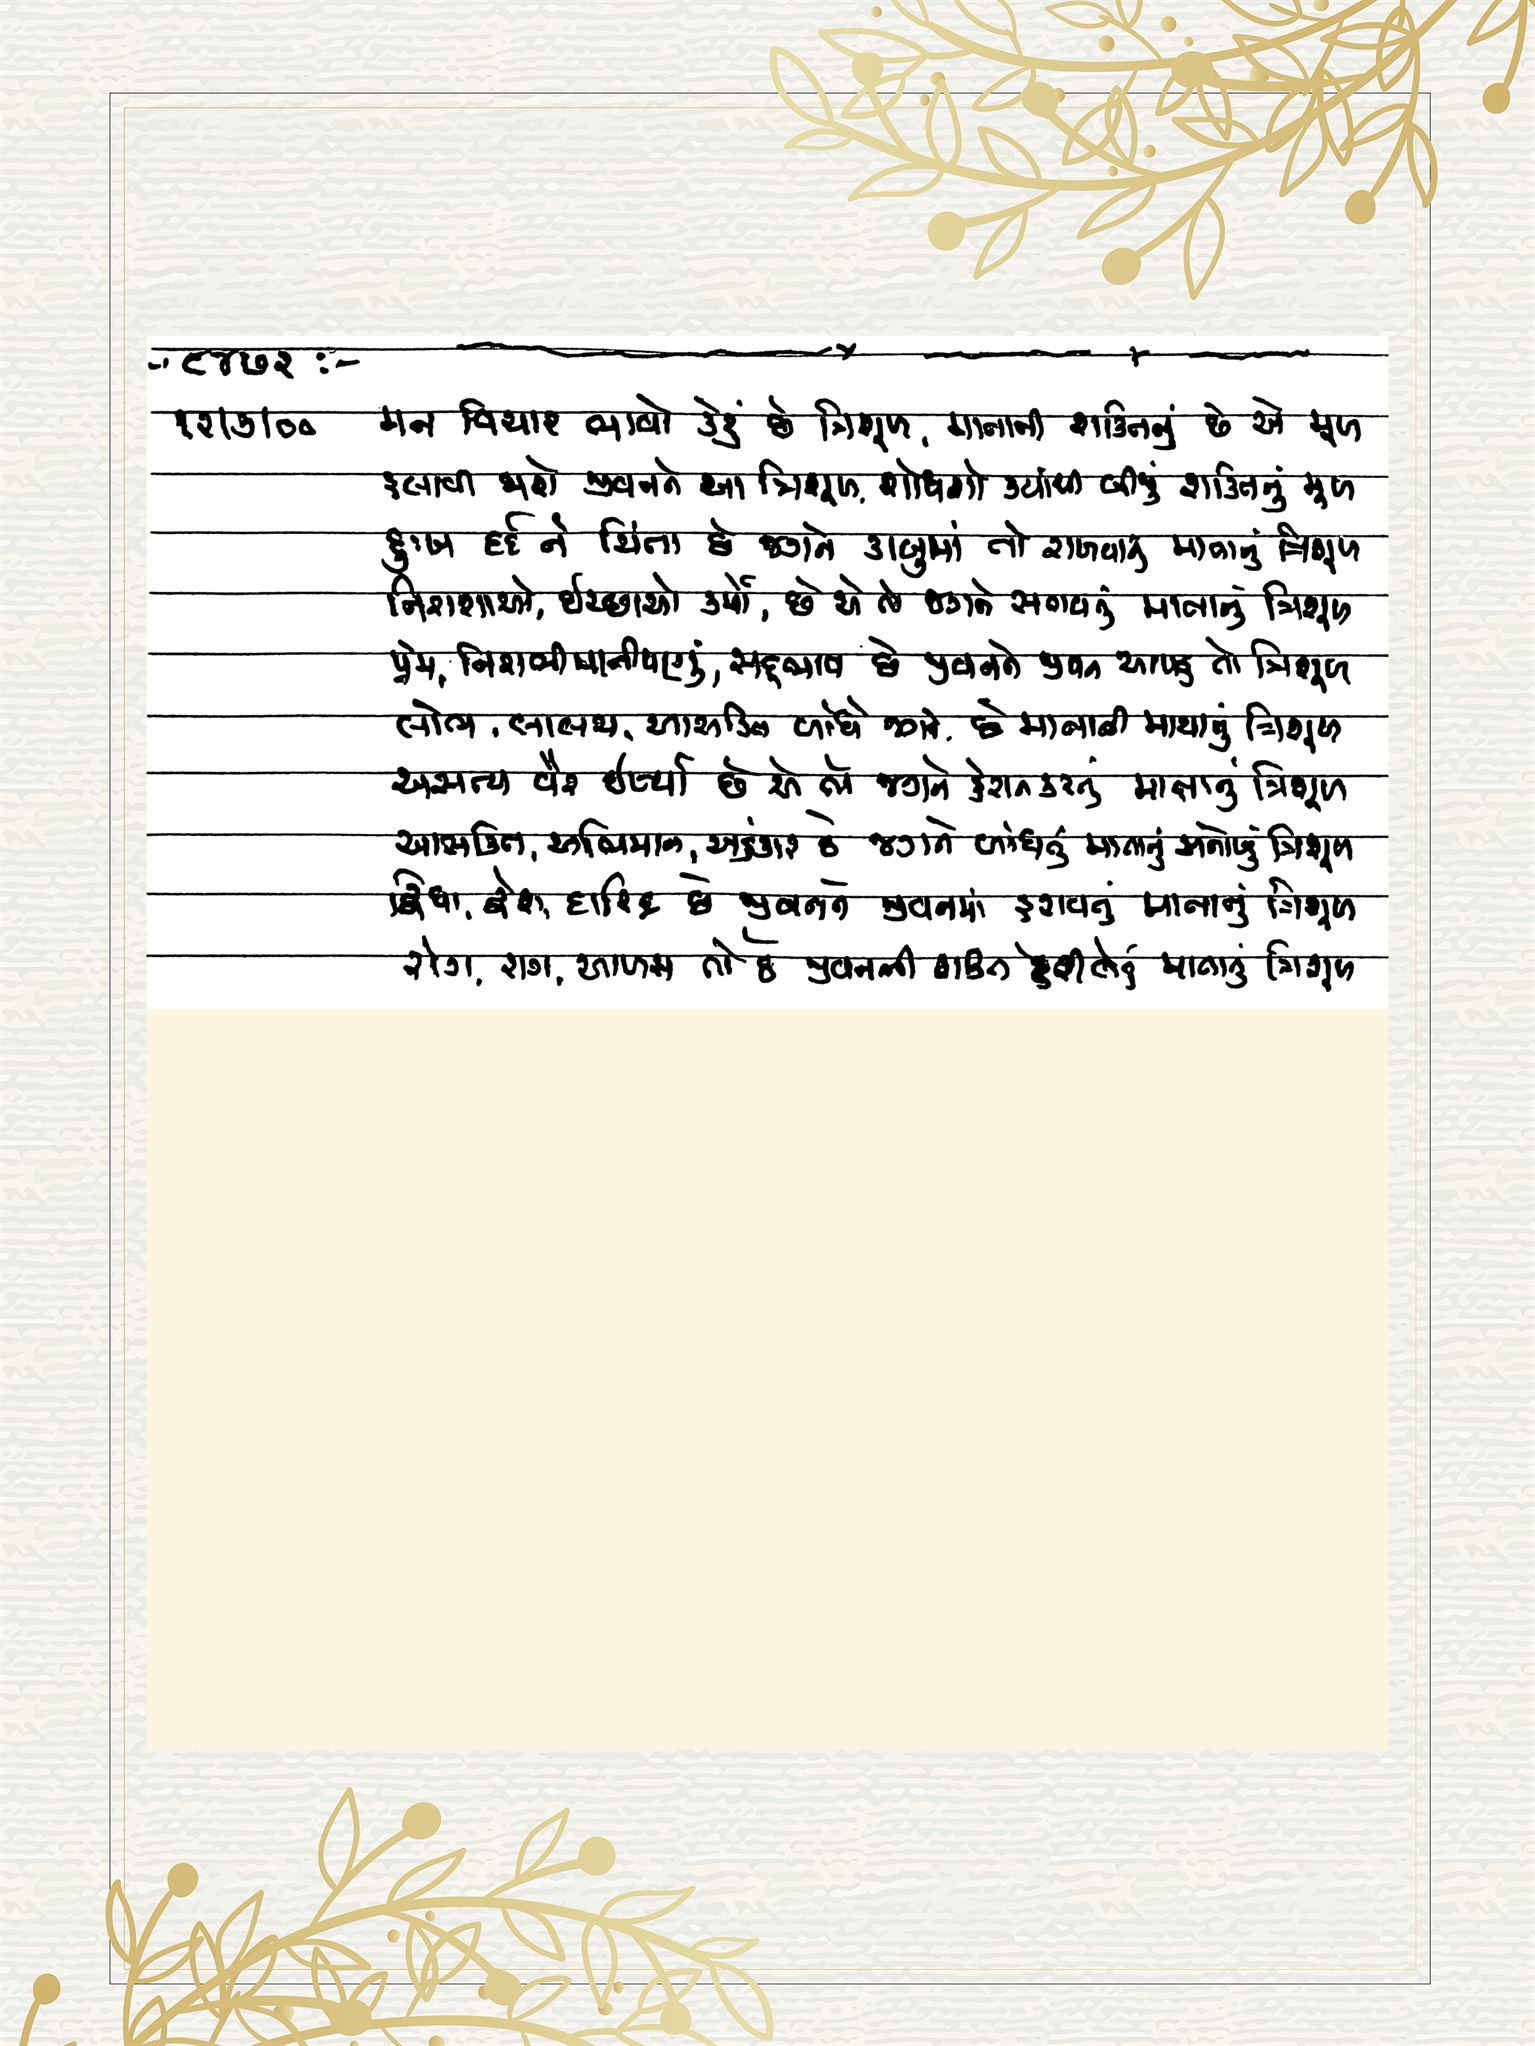 -: ૯૪૭૨ :-
૧૨/૭/૦૦ મન વિચાર ભાવો કેરું છે ત્રિશૂળ, માતાની શક્તિનું છે એ મૂળ
હલાવી જાશે જીવનને આ ત્રિશૂળ, શોધશો ક્યાંથી બીજું શક્તિનું મૂળ
દુઃખ દર્દ ને ચિંતા છે જગને કાબુમાં તો રાખવાનું માતાનું ત્રિશૂળ
નિરાશાઓ, ઈચ્છાઓ કર્મો, છે એ તો જગને સતાવતું માતાનું ત્રિશૂળ
પ્રેમ, નિરાભીમાનીપણું, સદ્દભાવ છે જીવનને જીવન આપતું તો ત્રિશૂળ
લોભ, લાલચ, આસક્તિ બાંધે જગને, છે માતાની માયાનું ત્રિશૂળ
અસત્ય વૈર ઈર્ષ્યા છે એ તો જગને હેરાન કરતું માતાનું ત્રિશૂળ
આસક્તિ, અભિમાન, અહંકાર છે જગને બાંધતું માતાનું અનોખું ત્રિશૂળ
દ્વિધા, દ્વેષ, દારિદ્ર છે જીવનને જીવનમાં હરાવતું માતાનું ત્રિશૂળ
રોગ, રાગ, આળસ તો છે જીવનની શક્તિ હરી લેતું માતાનું ત્રિશૂળ